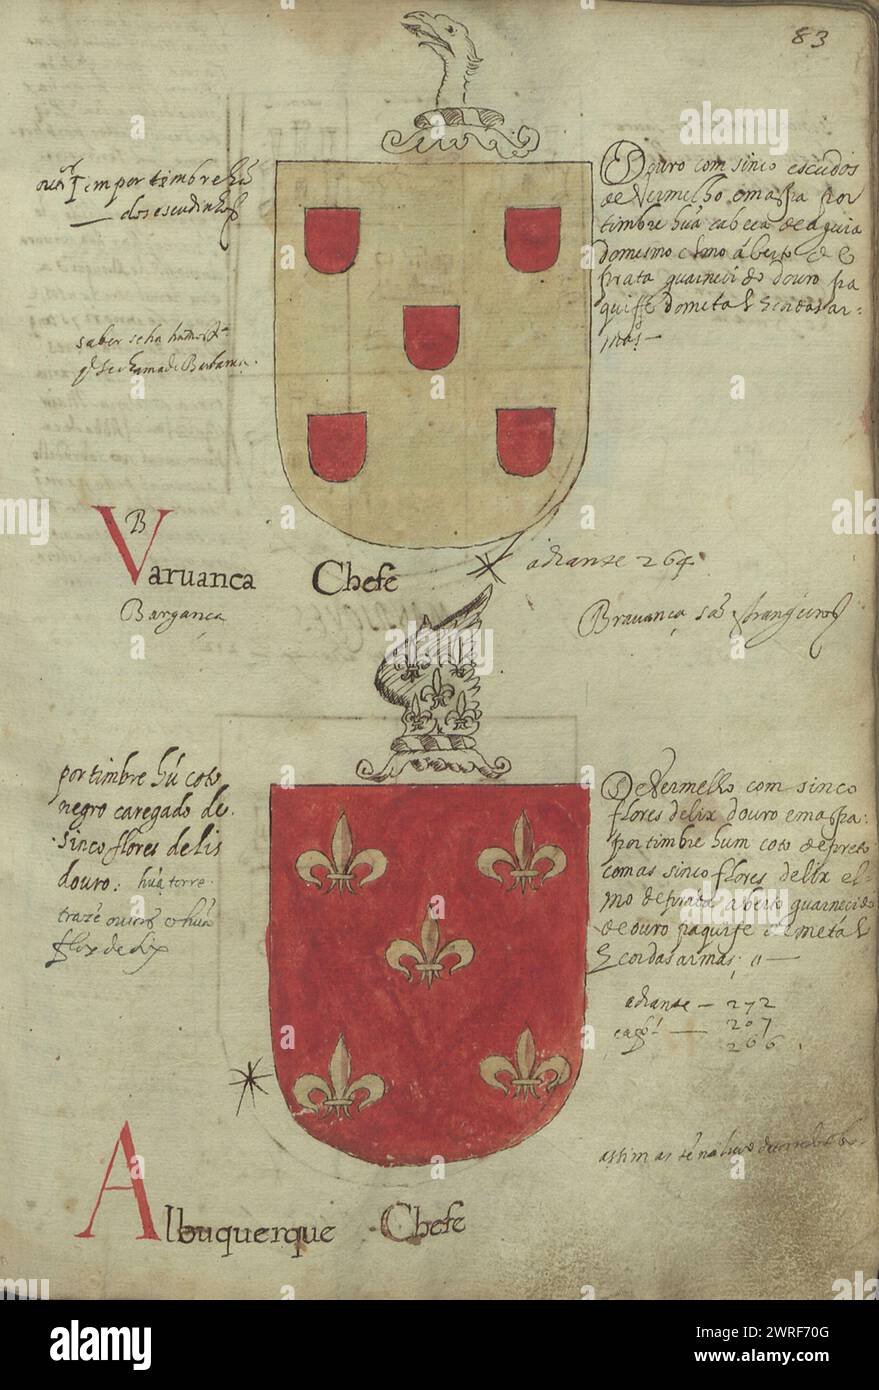 83
por timbre hũ
dos escudinhos
D ouro com sinco escudos
de Vermelho, e massa por
timbre huã cabeca de aguia
do mesmo elmo áberto de
prata guarneci do douro pa
quife do metal e cor das ar-
mas —
saber se ha
q̃ se chama de
B
Varuanca Chefe
Barganca
adiante 264
Bravança saõ strangeiros
por timbre hũ coto
negro caregado de
sinco flores de lis
douro: huã torre
traze outros e huã
flor de lix
De Vermelho com sinco
flores de lix douro e massa:
por timbre hum coto de preto
com as sinco flores de lix el-
mo de prata aberto guarnecido
de ouro paquife do metal
e cor das armas; —
adiante — 272
207
266
assim as
Albuquerque Chefe
alamy
Image ID: 2WRF70G
www.alamy.com